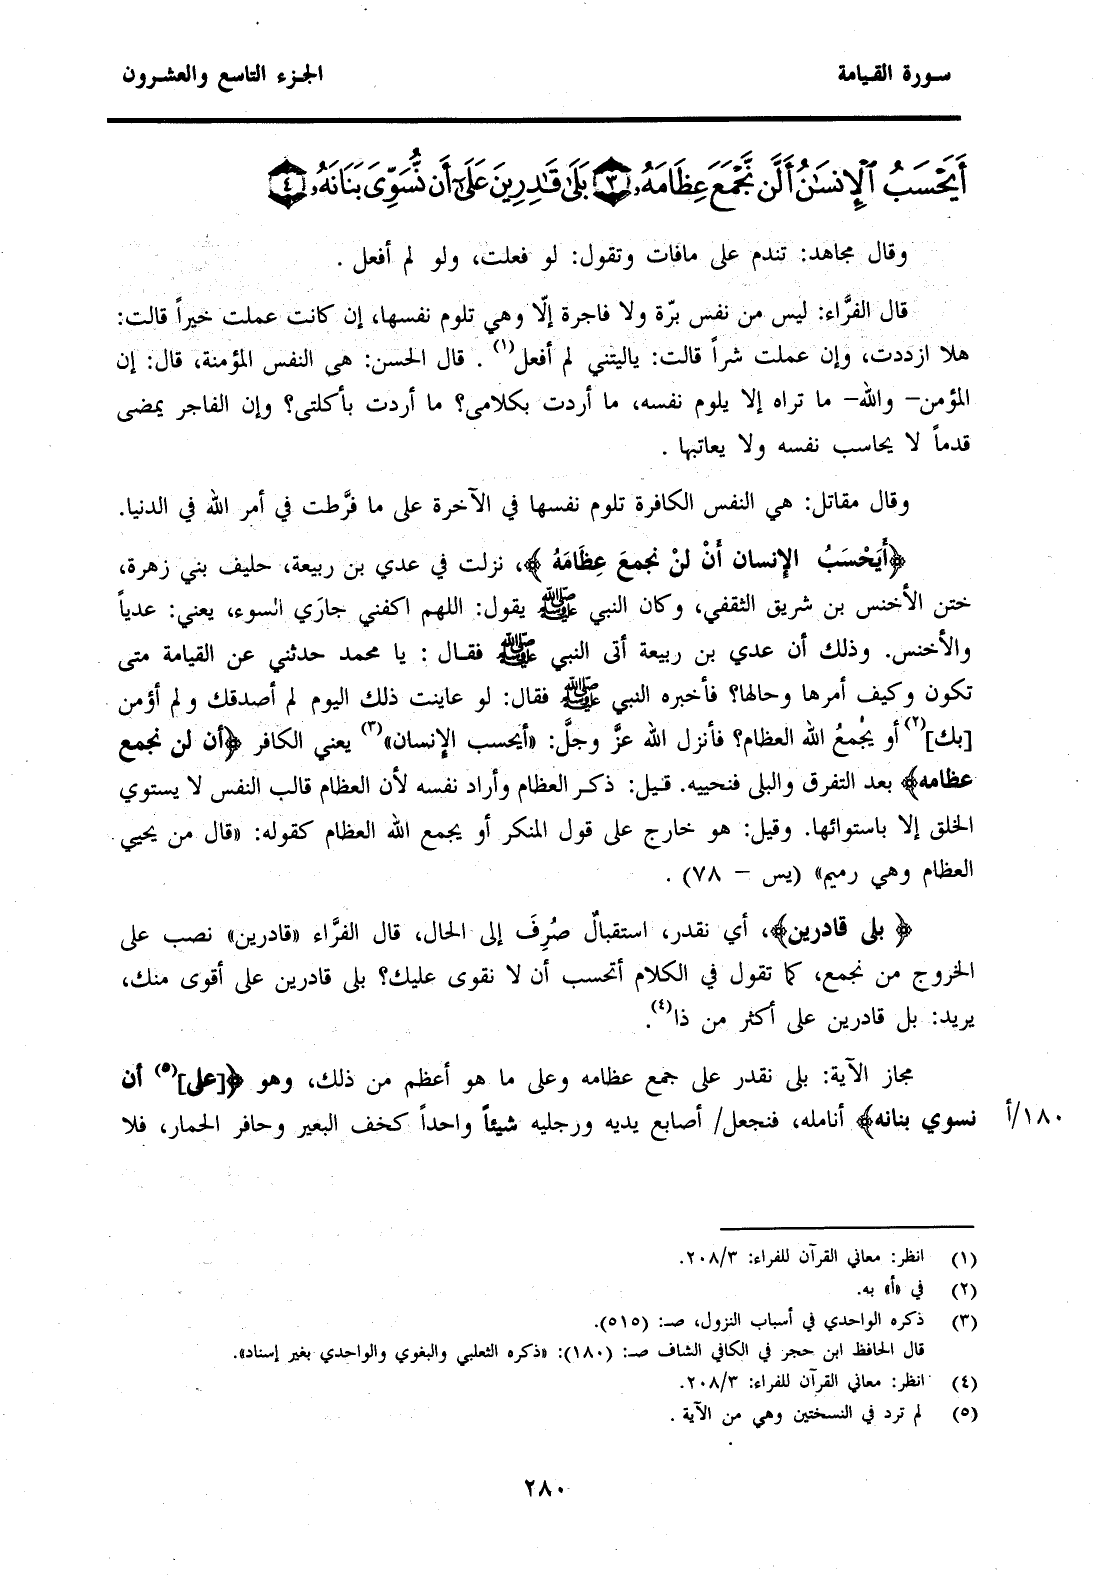 سورة القيامة
الجزء التاسع والعشرون
أَيَحْسَبُ ٱلْإِنسَٰنُ أَلَّن نَّجْمَعَ عِظَامَهُۥ ٣ بَلَىٰ قَٰدِرِينَ عَلَىٰٓ أَن نُّسَوِّىَ بَنَانَهُۥ ٤
وقال مجاهد: تندم على مافات وتقول: لو فعلت، ولو لم أفعل .
قال الفرَّاء: ليس من نفس برّة ولا فاجرة إلّا وهي تلوم نفسها، إن كانت عملت خيراً قالت:
هلا ازددت، وإن عملت شراً قالت: ياليتني لم أفعل(١) . قال الحسن: هي النفس المؤمنة، قال: إن
المؤمن– والله– ما تراه إلا يلوم نفسه، ما أردت بكلامي؟ ما أردت بأكلتي؟ وإن الفاجر يمضى
قدماً لا يحاسب نفسه ولا يعاتبها .
وقال مقاتل: هي النفس الكافرة تلوم نفسها في الآخرة على ما فرَّطت في أمر الله في الدنيا.
﴿أَيَحْسَبُ الإنسان أَنْ لنْ نجمعَ عِظَامَهُ﴾، نزلت في عدي بن ربيعة، حليف بني زهرة،
ختن الأخنس بن شريق الثقفي، وكان النبي ﷺ يقول: اللهم اكفني جارَي السوء، يعني: عدياً
والأخنس. وذلك أن عدي بن ربيعة أتى النبي ﷺ فقال : يا محمد حدثني عن القيامة متى
تكون وكيف أمرها وحالها؟ فأخبره النبي ﷺ فقال: لو عاينت ذلك اليوم لم أصدقك ولم أؤمن
[بك](٢) أو يجْمعُ الله العظام؟ فأنزل الله عزَّ وجلَّ: «أيحسب الإنسان»(٣) يعني الكافر ﴿أن لن نجمع
عظامه﴾ بعد التفرق والبلى فنحييه. قيل: ذكر العظام وأراد نفسه لأن العظام قالب النفس لا يستوي
الخلق إلا باستوائها. وقيل: هو خارج على قول المنكر أو يجمع الله العظام كقوله: «قال من يحيي
العظام وهي رميم» (يس – ٧٨) .
﴿بلى قادرين﴾، أي نقدر، استقبالٌ صُرِفَ إلى الحال، قال الفرَّاء «قادرين» نصب على
الخروج من نجمع، كما تقول في الكلام أتحسب أن لا نقوى عليك؟ بلى قادرين على أقوى منك،
يريد: بل قادرين على أكثر من ذا(٤).
مجاز الآية: بلى نقدر على جمع عظامه وعلى ما هو أعظم من ذلك، وهو ﴿[على](٥) أن
نسوي بنانه﴾ أنامله، فنجعل/ أصابع يديه ورجليه شيئاً واحداً كخف البعير وحافر الحمار، فلا
١٨٠/أ
(١) انظر: معاني القرآن للفراء: ٢٠٨/٣.
(٢) في «أ» به.
(٣) ذكره الواحدي في أسباب النزول، صـ: (٥١٥).
قال الحافظ ابن حجر في الكافي الشاف صـ: (١٨٠): «ذكره الثعلبي والبغوي والواحدي بغير إسناد».
(٤) انظر: معاني القرآن للفراء: ٢٠٨/٣.
(٥) لم ترد في النسختين وهي من الآية .
٢٨٠